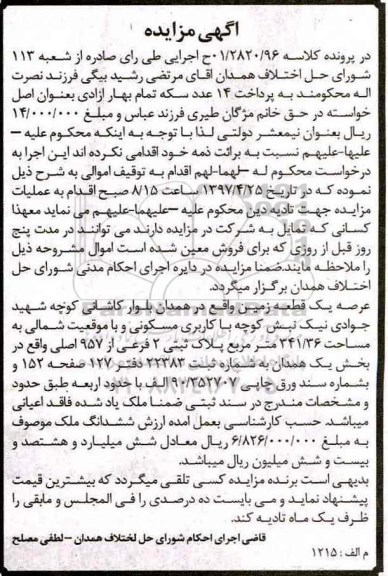 آگهی مزایده
در پرونده کلاسه ۰۱/۲۸۲۰/۹۶ح اجرایی طی رای صادره از شعبه ۱۱۳
شورای حل اختلاف همدان آقای مرتضی رشید بیگی فرزند نصرت
اله محکومند به پرداخت ۱۴ عدد سکه تمام بهار آزادی بعنوان اصل
خواسته در حق خانم مژگان طیری فرزند عباس و مبلغ ۱۴/۰۰۰/۰۰۰
ریال بعنوان نیمعشر دولتی لذا با توجه به اینکه محکوم علیه –
علیها-علیهم نسبت به برائت ذمه خود اقدامی نکرده اند این اجرا به
درخواست محکوم له –لهما-لهم اقدام به توقیف اموالی به شرح ذیل
نموده که در تاریخ ۱۳۹۷/۴/۲۵ ساعت ۸/۱۵ صبح اقدام به عملیات
مزایده جهت تادیه دین محکوم علیه –علیهما-علیهم می نماید معهذا
کسانی که تمایل به شرکت در مزایده دارند می توانند در مدت پنج
روز قبل از روزی که برای فروش معین شده است اموال مشروحه ذیل
را ملاحظه مایند.ضمنا مزایده در دایره اجرای احکام مدنی شورای حل
اختلاف همدان برگزار میگردد.
عرصه یک قطعه زمین واقع در همدان بلوار کاشانی کوچه شهید
جوادی نیک نبش کوچه با کاربری مسکونی و با موقعیت شمالی به
مساحت ۲۴۱/۳۶ متر مربع پلاک ثبتی ۲ فرعی از ۹۵۷ اصلی واقع در
بخش یک همدان به شماره ثبت ۲۲۳۸۳ دفتر ۱۲۷ صفحه ۱۵۲ و
بشماره سند ورق چاپی ۹۰/۳۵۲۷۰۷ الف با حدود اربعه طبق حدود
و مشخصات مندرج در سند ثبتی ضمنا ملک یاد شده فاقد اعیانی
میباشد. حسب کارشناسی بعمل امده ارزش ششدانگ ملک موصوف
به مبلغ ۶/۸۲۶/۰۰۰/۰۰۰ ریال معادل شش میلیارد و هشتصد و
بیست و شش میلیون ریال میباشد.
بدیهی است برنده مزایده کسی تلقی میگردد که بیشترین قیمت
پیشنهاد نماید و می بایست ده درصدی را فی المجلس و مابقی را
ظرف یک ماه تادیه کند.
قاضی اجرای احکام شورای حل لختلاف همدان –لطفی مصلح
م الف : ۱۲۱۵